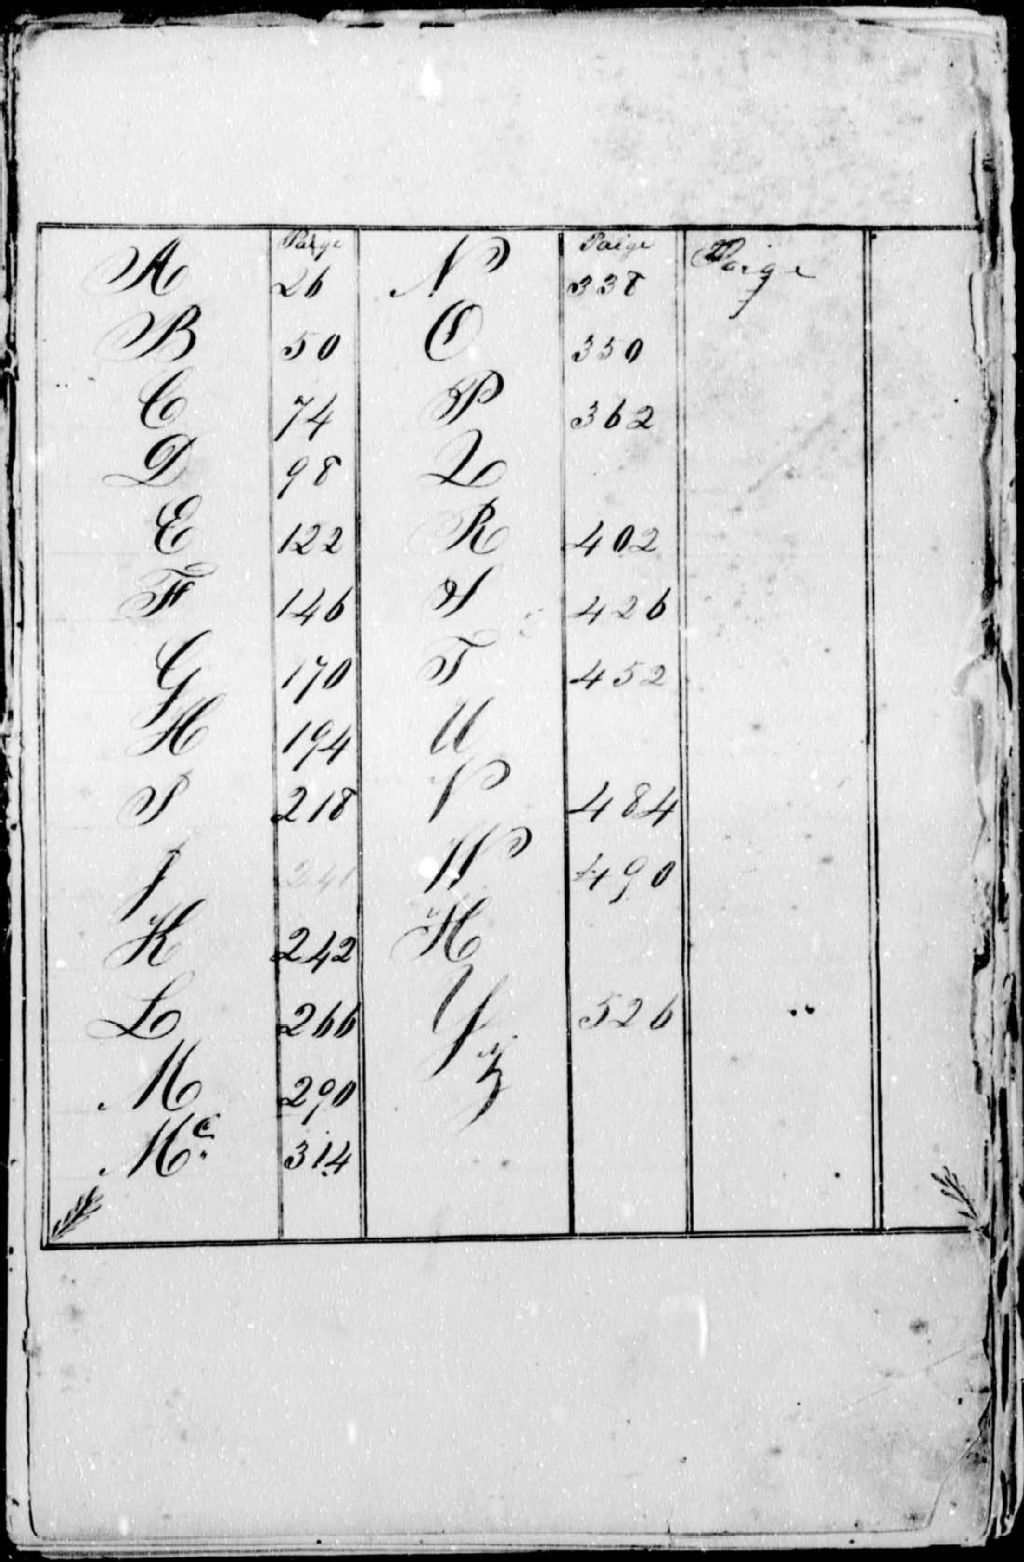 Paige Paige Paige
A 26 N 338
B 50 O 350
C 74 P 362
D 98 Q
E 122 R 402
F 146 S 426
G 170 T 452
H 194 U
I 218 V 484
J 241 W 490
K 242 X
L 266 Y 526
M 290 Z
Mc. 314